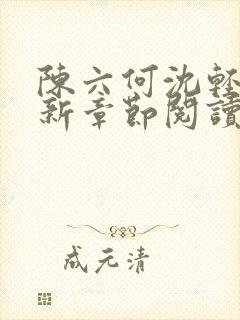 陳六何沈輕
新章節閱讀
成元清